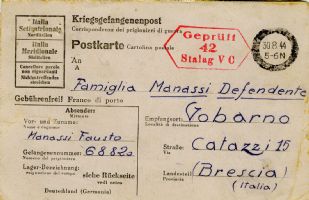 Italia
Settentrionale
Norditalien
Italia
Meridionale
Süditalien
Cancellare parole
non riguardanti
Kriegsgefangenenpost
Corrispondenza dei prigionieri di guerra
Postkarte Cartolina postale
Geprüft
42
Stalag V C
30.8.44
5-6N
An
A
Famiglia Manassi Defendente
Gebührenfrei! Franco di porto
Absender:
Mittente
Vor- und Zuname:
Nome e cognome
Manassi Fausto
Gefangenennummer:
68820
Lager-Bezeichnung:
siehe Rückseite
vedi retro
Deutschland (Germania)
Empfangsort: Vobarno
Località di destinazione
Straße: Catazzi 15
Via
Landesteil: (Brescia)
Provincia
(Italia)